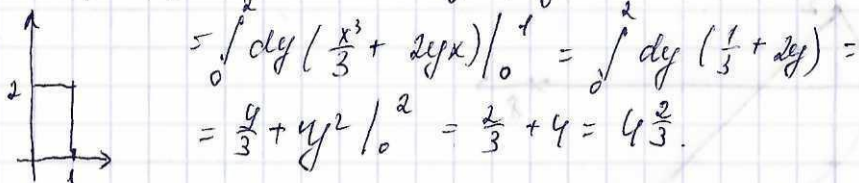 = ∫₀² dy (x³/3 + 2yx) |₀¹ = ∫₀² dy (1/3 + 2y) =
2
= y/3 + y² |₀² = 2/3 + 4 = 4 2/3.
1